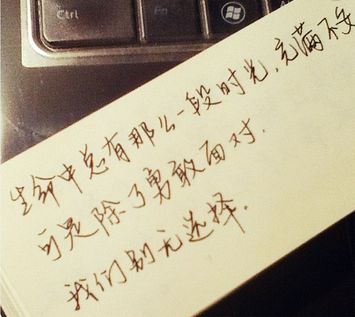 Ctrl
Fn
生命中总有那么一段时光，充满不安
可是除了勇敢面对.
我们别无选择.